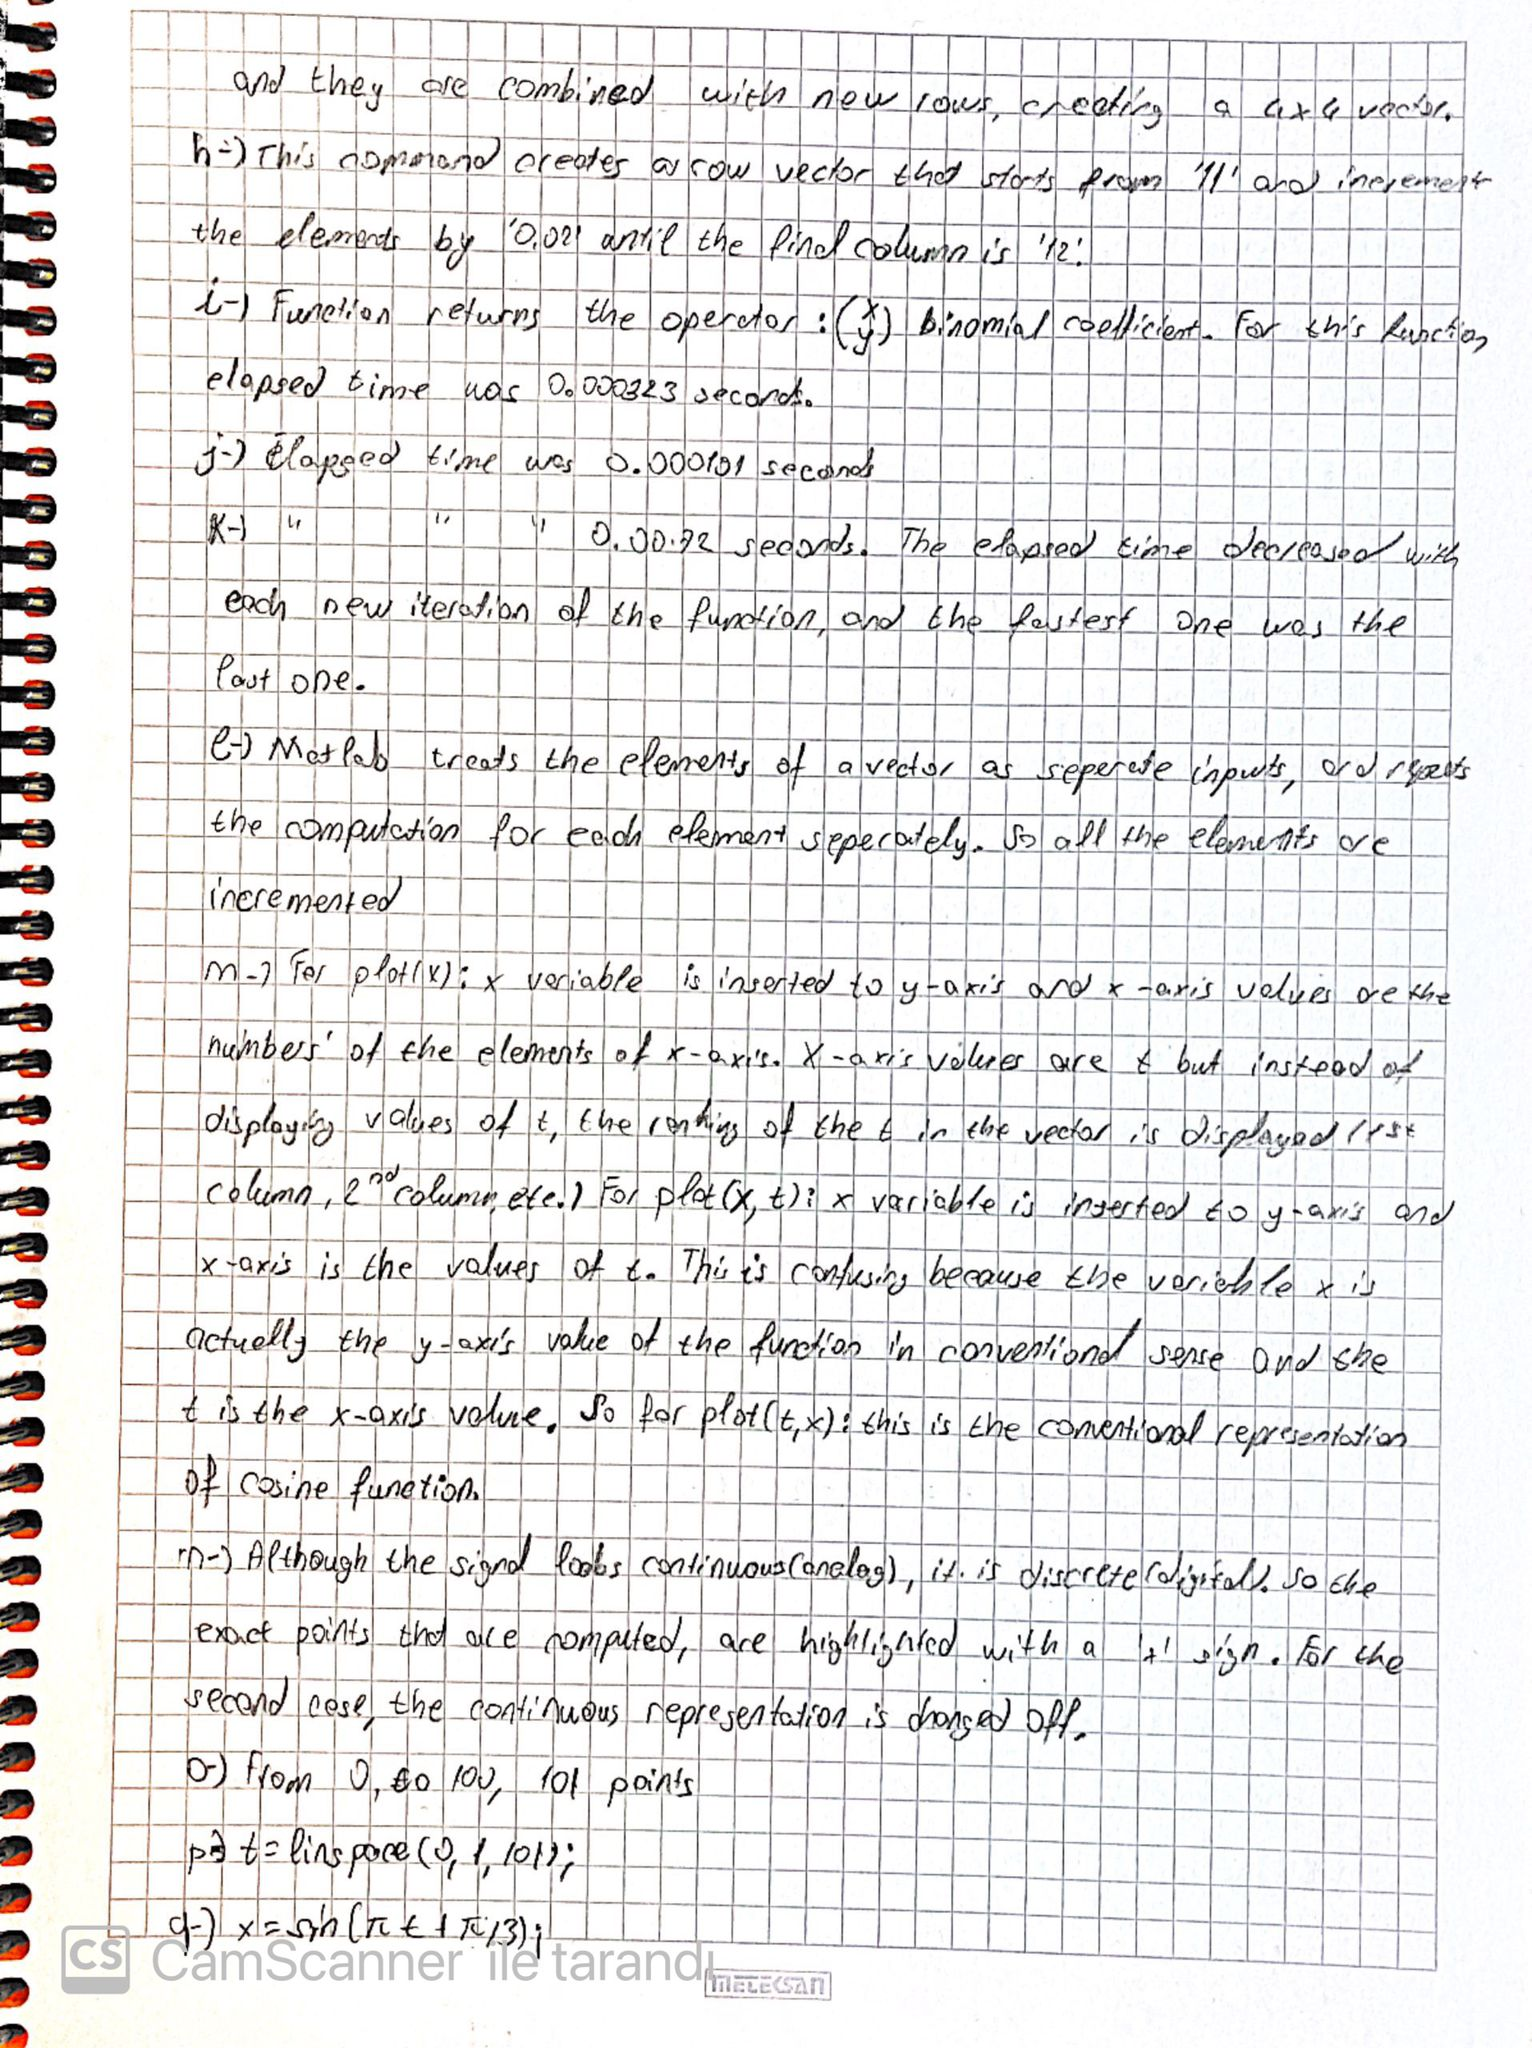 and they are combined with new rows, creating a 4x4 vector.
h-) This command creates a row vector that starts from '11' and increment
the elements by '0.02' until the final column is '12'.
i-) Function returns the operator : (x y) binomial coefficient. For this function
elapsed time was 0.000323 seconds.
j-) Elapsed time was 0.000101 seconds
k-) " " " seconds. The elapsed time decreased with
each new iteration of the function, and the fastest one was the
last one.
l-) Matlab treats the elements of a vector as seperate inputs, and repeats
the computation for each element seperately. So all the elements are
incremented
m-) For plot(x): x variable is inserted to y-axis and x-axis values are the
numbers' of the elements of x-axis. X-axis values are t but instead of
displaying values of t, the ranking of the t in the vector is displayed (1st
column, 2nd column, etc.) For plot(x, t): x variable is inserted to y-axis and
x-axis is the values of t. This is confusing because the variable x is
actually the y-axis value of the function in conventional sense and the
t is the x-axis value. So for plot(t,x): this is the conventional representation
of cosine function.
n-) Although the signal looks continuous(analog), it is discrete(digital). So the
exact points that are computed, are highlighted with a '+' sign. For the
second case, the continuous representation is changed off.
o-) From 0, to 100, 101 points
p-) t = linspace(0, 1, 101);
q-) x = sin(π t + π/3);
CS CamScanner ile tarandı
METEKSAN